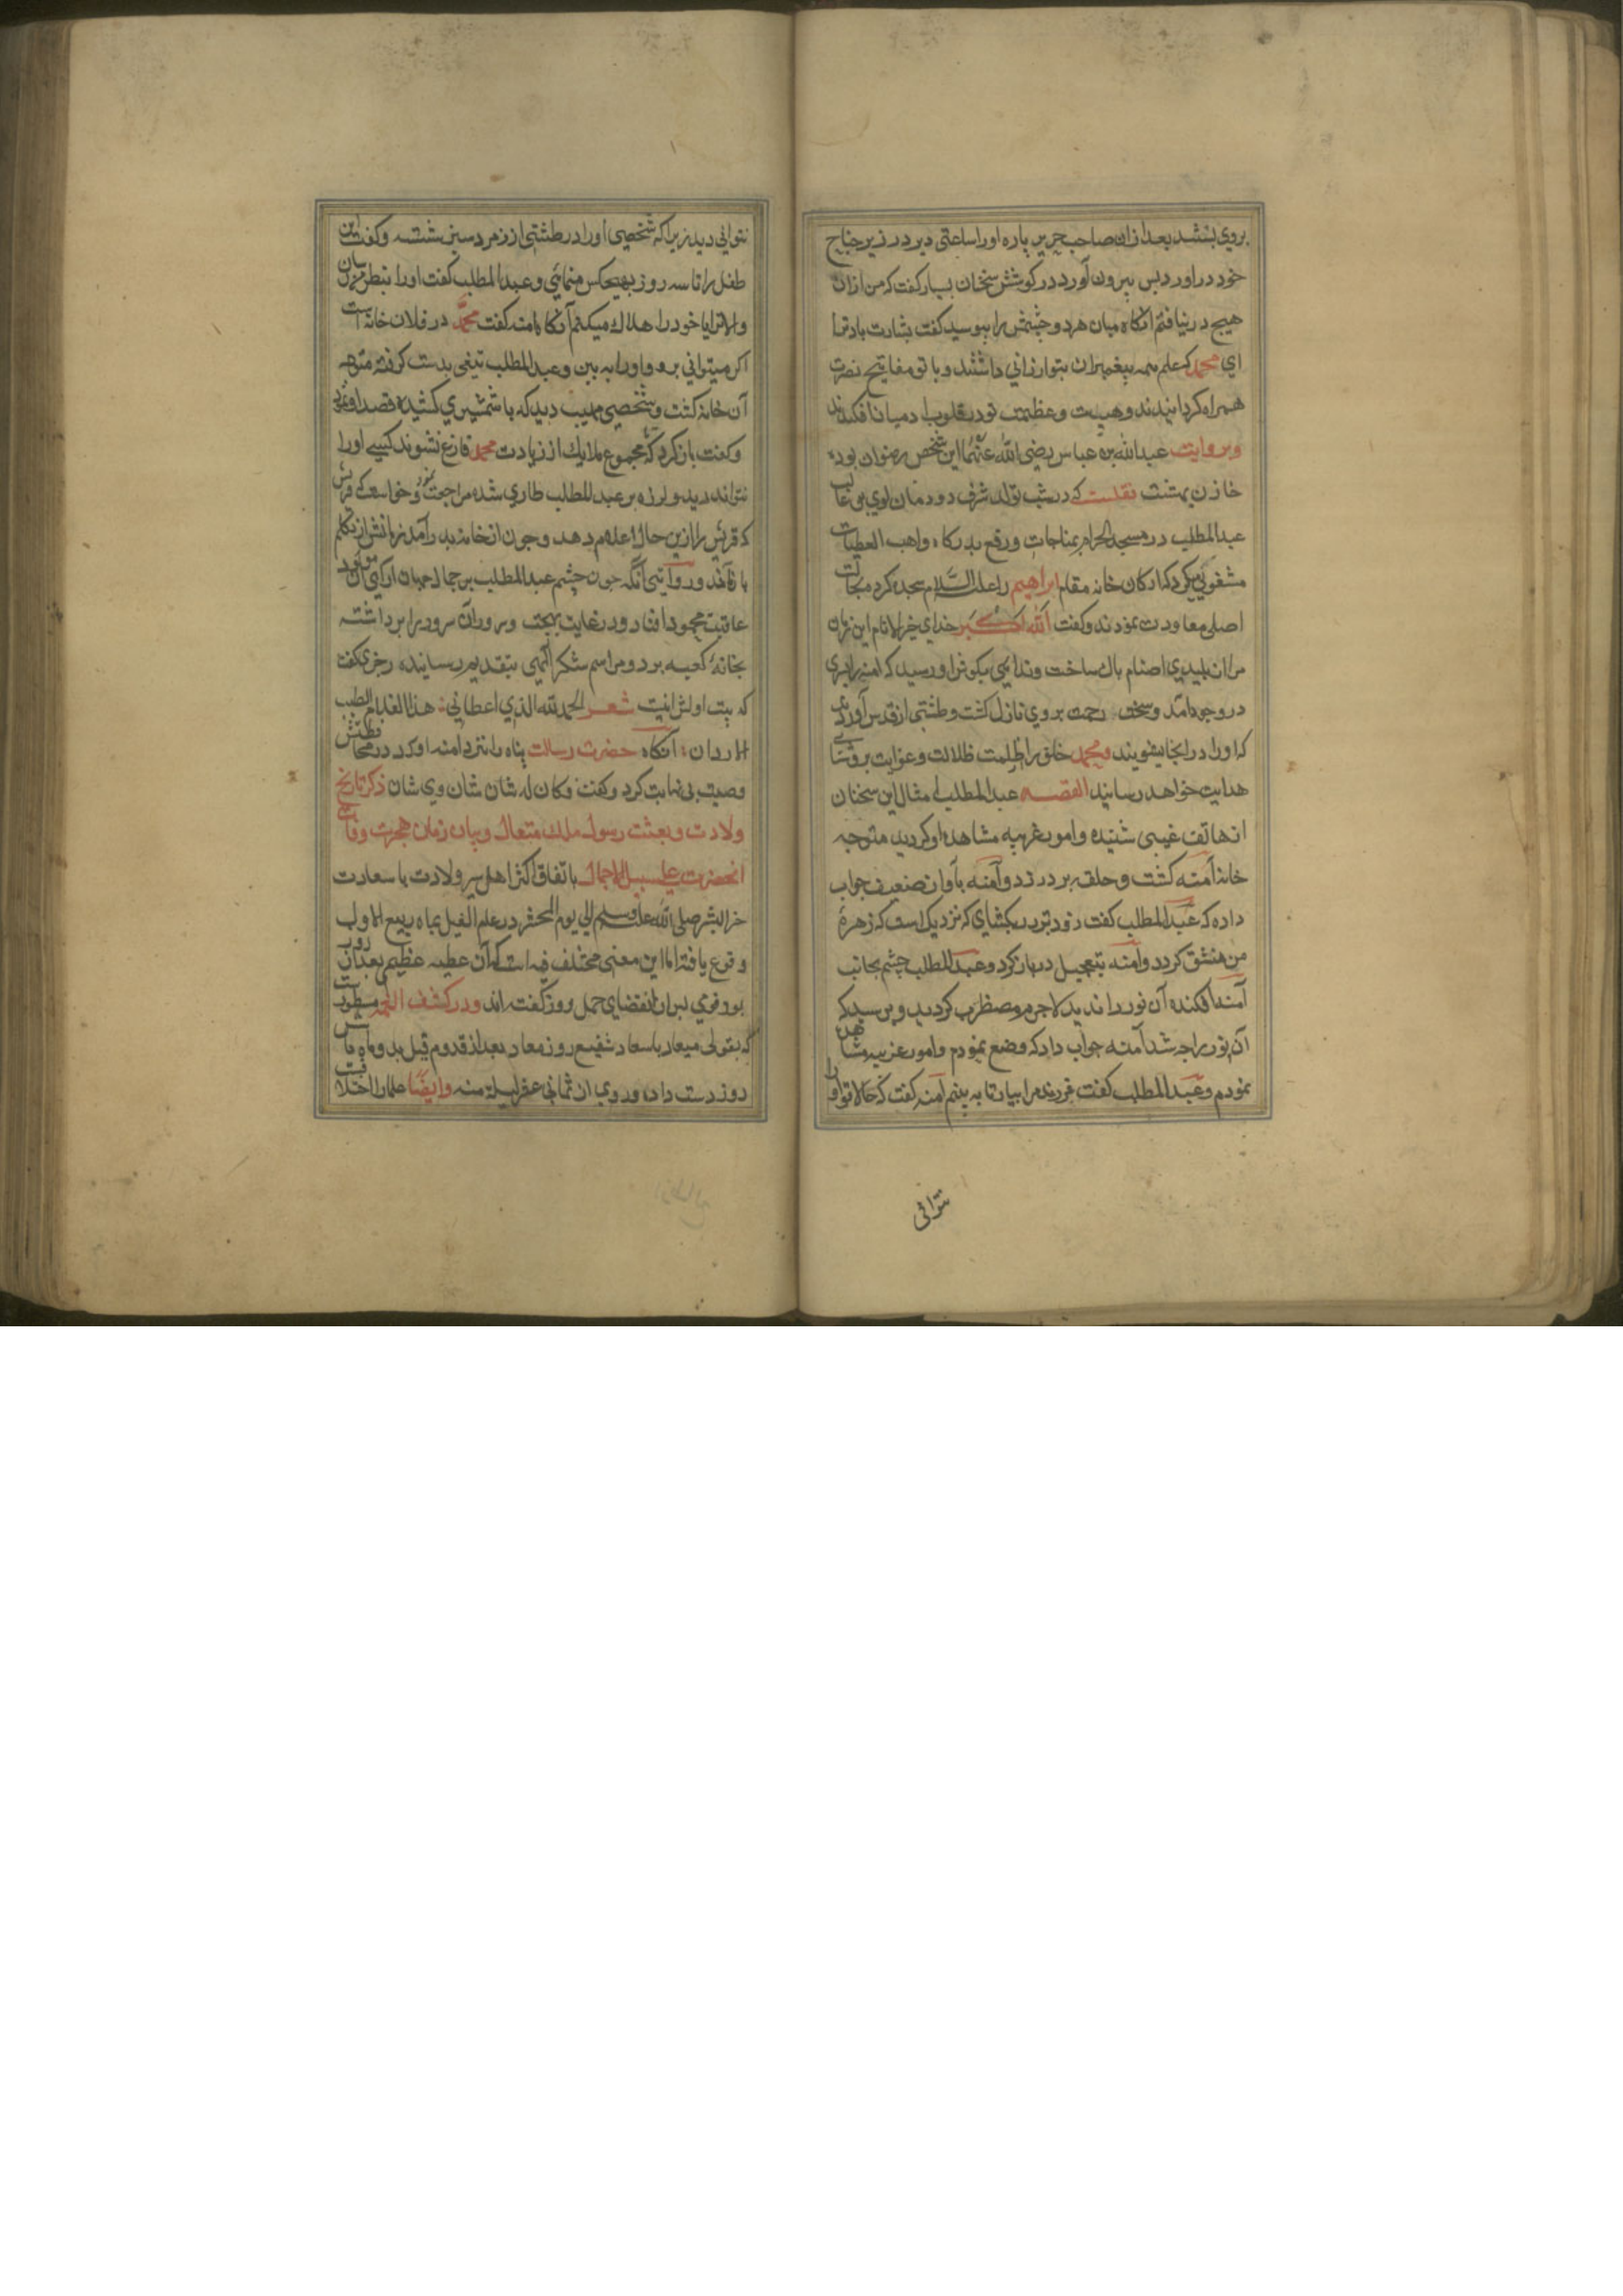 بروي بنشد بعد ازان صاحب حرير پاره اورا ساعتي دير در زير جناح
خود دراورد پس بيرون آورد در كوشش سخنان بسيار كفت كه من ازان
هيچ در نيافتم انكاه ميان هر دو چشمش را ببوسيد كفت بشارت باد ترا
اي محمد كه علم همه پيغمبران بتو ارزاني داشتند و با تو مفاتيح نصرت
همراه كردانيدند وهيبت وعظمت تو در قلوب ادميان افكندند
وبروايت عبدالله بن عباس رضي الله عنهما اين شخص رضوان بود
خازن بهشت نقلست كه در شب تولد شرف دودمان لوي بن غالب
عبدالمطلب در مسجد الحرام بمناجات ورفع بدركاه واهب العطيات
مشغولي ميكرد كه اركان خانه مقام ابراهيم را عليه السلام سجده كرد
اصلي معاودت نمودند وكفت الله اكبر خداي خير الانام اين زمان
مرا از پليدي اصنام پاك ساخت وندايي بكوش او رسيد كه امنه را پسري
در وجود آمد وسحاب رحمت بروي نازل كشت وطشتي از قدس آوردند
كه اورا در انجا بشويند ومحمد خلق را از ظلمت ظلالت وغوايت بروشنائي
هدايت خواهد رسانيد القصه عبدالمطلب امثال اين سخنان
از هاتف غيبي شنيده وامور غريبه مشاهده او كرديد متوجه
خانه آمنه كشت وحلقه بر در زد وآمنه بآواز ضعيف جواب
داده كه عبدالمطلب كفت زودتر در بكشاي كه نزديك است كه زهرهٔ
من منشق كردد وآمنه بتعجيل در باز كرد وعبدالمطلب چشم بجانب
آمنه افكنده آن نور را نديد لاجرم مضطرب كرديد وپرسيد كه
آن نور را چه شد آمنه جواب داد كه وضع نمودم وامور غريبه مشاهده
نمودم وعبدالمطلب كفت فرزند مرا بيار تا به بينم آمنه كفت كه حالا تو اورا
نتواني
نتواني ديد زيرا كه شخصي اورا در طشتي از زمرد سبز شسته وكفت اين
طفل را تا سه روز بهيچكس منمائي وعبدالمطلب كفت اورا بنظر من رسان
والا ترا يا خود را هلاك ميكنم آنكاه امنه كفت محمد در فلان خانه است
اكر ميتواني برو واورا به بين وعبدالمطلب تيغي بدست كرفته متوجه
آن خانه كشت وشخصي مهيب ديد كه با شمشيري كشيده قصد او نمود
وكفت باز كرد كه مجموع ملايك از زيارت محمد فارغ نشوند كسي اورا
نتواند ديد ولرزه بر عبدالمطلب طاري شده مراجعت نمود وخواست كه
كه قريش را ازين حال اعلام دهد وچون از خانه بدر آمد زبانش از تكلم
باز آمد وروايتي آنكه چون چشم عبدالمطلب بر جمال جهان اراي آن مولود
عاقبت محمود افتاد ودر غايت بهجت وسرور آن سرور را برداشته
بخانهٔ كعبه برد ومراسم شكر الهي بتقديم رسانيده رجزي كفت
كه بيت اولش اينست شعر الحمد لله الذي اعطاني هذا الغلام الطيب
الاردان انكاه حضرت رسالت پناه را نزد امنه اورد در محافظتش
وصيت بي نهايت كرد وكفت وكان له شان شان وي شان ذكر تاريخ
ولادت وبعثت رسول ملك متعال وبيان زمان هجرت وفات
انحضرت علي سبيل الاجمال باتفاق اكثر اهل سير ولادت با سعادت
خير البشر صلي الله عليه وسلم الي يوم المحشر در عام الفيل بماه ربيع الاول
وقوع يافته اما اين معني مختلف فيه است كه آن عطيه عظيم بعد از
بود وقومي بران انقضاي چهل روز كفته اند ودر كشف الغمه مسطور است
كه بقولي ميعاد با سعاد شفيع روز معاد بعد از قدوم فيل بدو ماه
روز دست داده ودر وي از ثماني عشر ليلة منه وايضًا علما را اختلافست